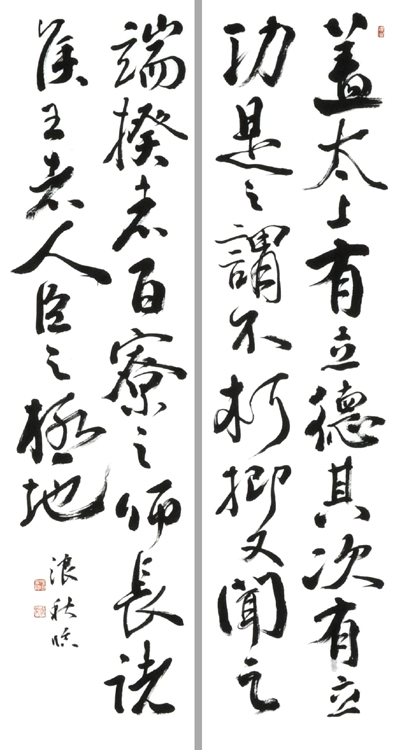 盖太上有立德其次有立
功是之謂不朽抑又聞之
端揆者百寮之師長諸
侯王者人臣之極地
浪秋臨